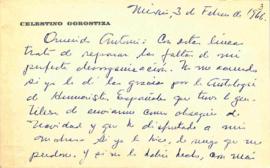 CELESTINO GOROSTIZA
México, 3 de Febrero de 1966
3
Querido Antonio: Con estas líneas
trato de reparar las faltas de mi
perfecta desorganización. No me acuerdo
si ya le di las gracias por la Antología
de Humoristas Españoles que tuvo la gen-
tileza de enviarme como obsequio de
Navidad y que he disfrutado a mis
anchas. Si ya lo hice, le ruego que me
perdone; y si no lo había hecho, con mas